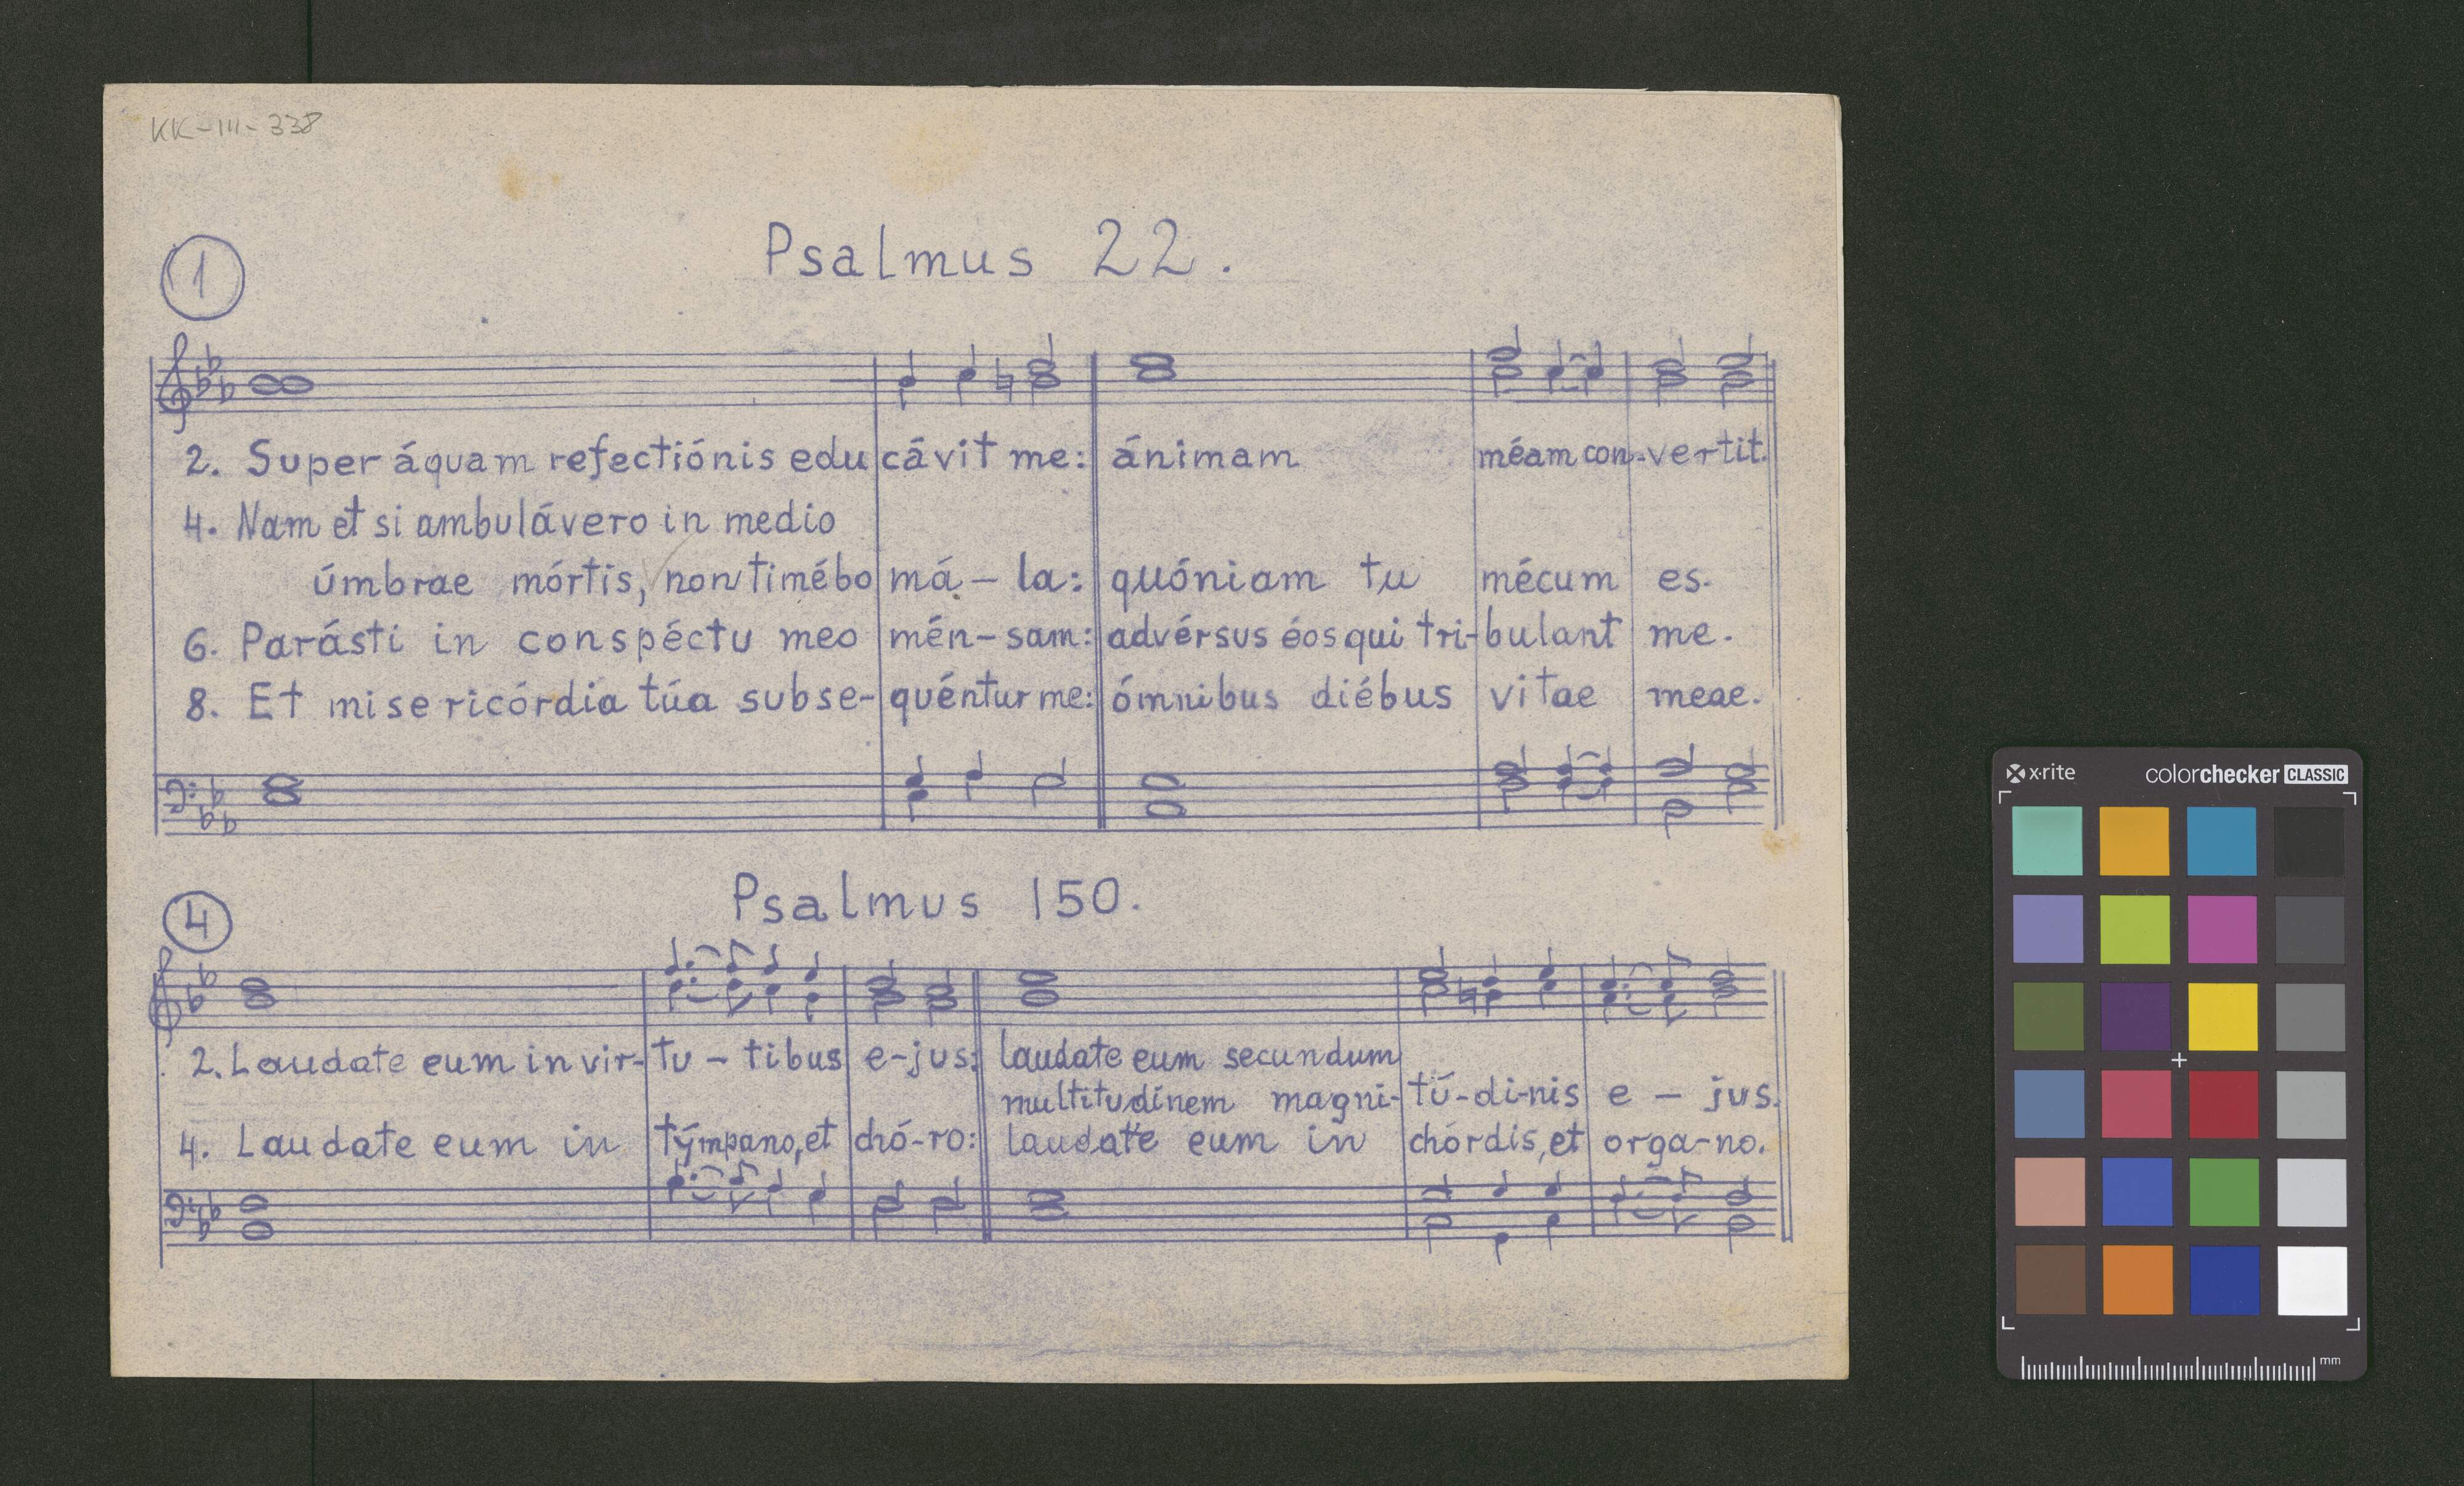 KK-III-338
Psalmus 22.
1
2. Super áquam refectiónis edu cávit me: ánimam méam con-vertit.
4. Nam et si ambulávero in medio
úmbrae mórtis, non timébo má-la: quóniam tu mécum es.
6. Parásti in conspéctu meo mén-sam: advérsus éos qui tri-bulant me.
8. Et misericórdia túa subse-quéntur me: ómnibus diébus vitae meae.
Psalmus 150.
4
2. Laudate eum in vir-tu-tibus e-jus: laudate eum secundum
multitudinem magni-tú-di-nis e-jus.
4. Laudate eum in týmpano, et chó-ro: laudate eum in chórdis, et orga-no.
x-rite colorchecker CLASSIC
mm